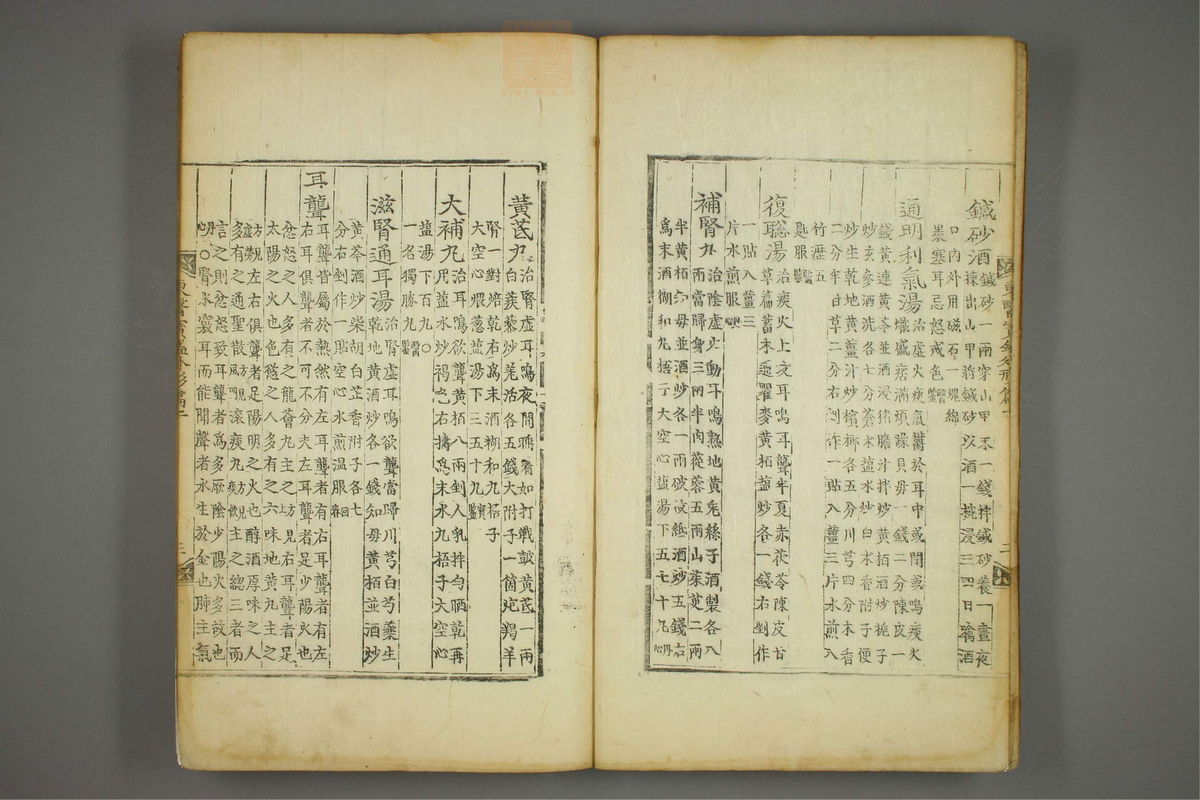 鍼砂酒 鍼砂一兩穿山甲末一錢拌鍼砂養一晝夜
揀出山甲將鍼砂以酒一椀浸三四日噙酒
口內外用磁石一塊綿
裹塞耳忌怒戒色醫鑑
通明利氣湯 治虛火痰氣鬱於耳中或閉或鳴痰火
熾盛痞滿煩躁貝母一錢二分陳皮一
錢黃連黃芩並酒浸猪膽汁拌炒黃栢酒炒梔子
炒玄參酒洗各七分蒼朮鹽水炒白朮香附子便
炒生乾地黃薑汁炒檳榔各五分川芎四分木香
二分半甘草二分右剉作一貼入薑三片水煎入
竹瀝五
匙服醫鑑
復聰湯 治痰火上攻耳鳴耳聾半夏赤茯苓陳皮甘
草萹蓄木通瞿麥黃栢鹽炒各一錢右剉作
一貼入薑三
片水煎服
補腎丸 治陰虛火動耳鳴熟地黃兎絲子酒製各八
兩當歸身三兩半肉蓯蓉五兩山茱萸二兩
半黃栢知母並酒炒各一兩破故紙酒炒五錢右
爲末酒糊和丸梧子大空心鹽湯下五七十丸丹心
黃芪丸 治腎虛耳鳴夜間睡着如打戰鼓黃芪一兩
白蒺藜炒羌活各五錢大附子一箇炮羯羊
腎一對焙乾右爲末酒糊和丸梧子
大空心煨葱鹽湯下三五十丸寶鑑
大補丸 治耳鳴欲聾黃栢八兩剉人乳拌勻晒乾再
用鹽水炒褐色右擣爲末水丸梧子大空心
鹽湯下百丸○
一名獨勝丸醫鑑
滋腎通耳湯 治腎虛耳鳴欲聾當歸川芎白芍藥生
乾地黃酒炒各一錢知母黃栢並酒炒
黃芩酒炒柴胡白芷香附子各七
分右剉作一貼空心水煎溫服回春
耳聾 耳聾皆屬於熱然有左耳聾者有右耳聾者有左
右耳俱聾者不可不分夫左耳聾者足少陽火也
忿怒之人多有之龍薈丸主之右耳聾者足
太陽之火也色慾之人多有之六味地黃丸主之
左右俱聾者足陽明之火也醇酒厚味之人
多有之通聖散滾痰丸主之總三者而
言之則忿怒致耳聾者爲多厥陰少陽火多故也
○腎水竅耳而能聞聲者水生於金也肺主氣